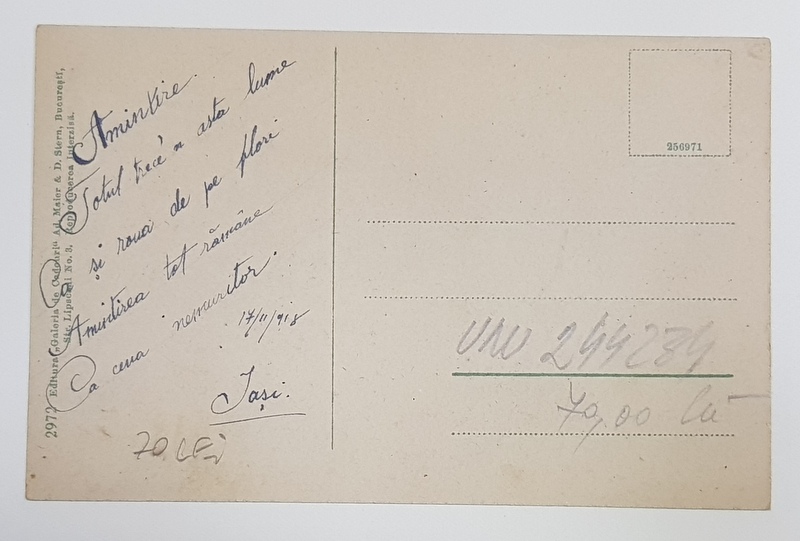 Amintire.
Totul trece'n asta lume
și roua de pe flori
Amintirea tot rămâne
Ca ceva nemuritor.
17/II/918
Iași.
70 LEI
2972 Editura „Galeria de Cadouri" Ad. Maier & D. Stern, București,
Str. Lipscani No. 3. Reproducerea interzisă.
256971
244284
70,00 Lei